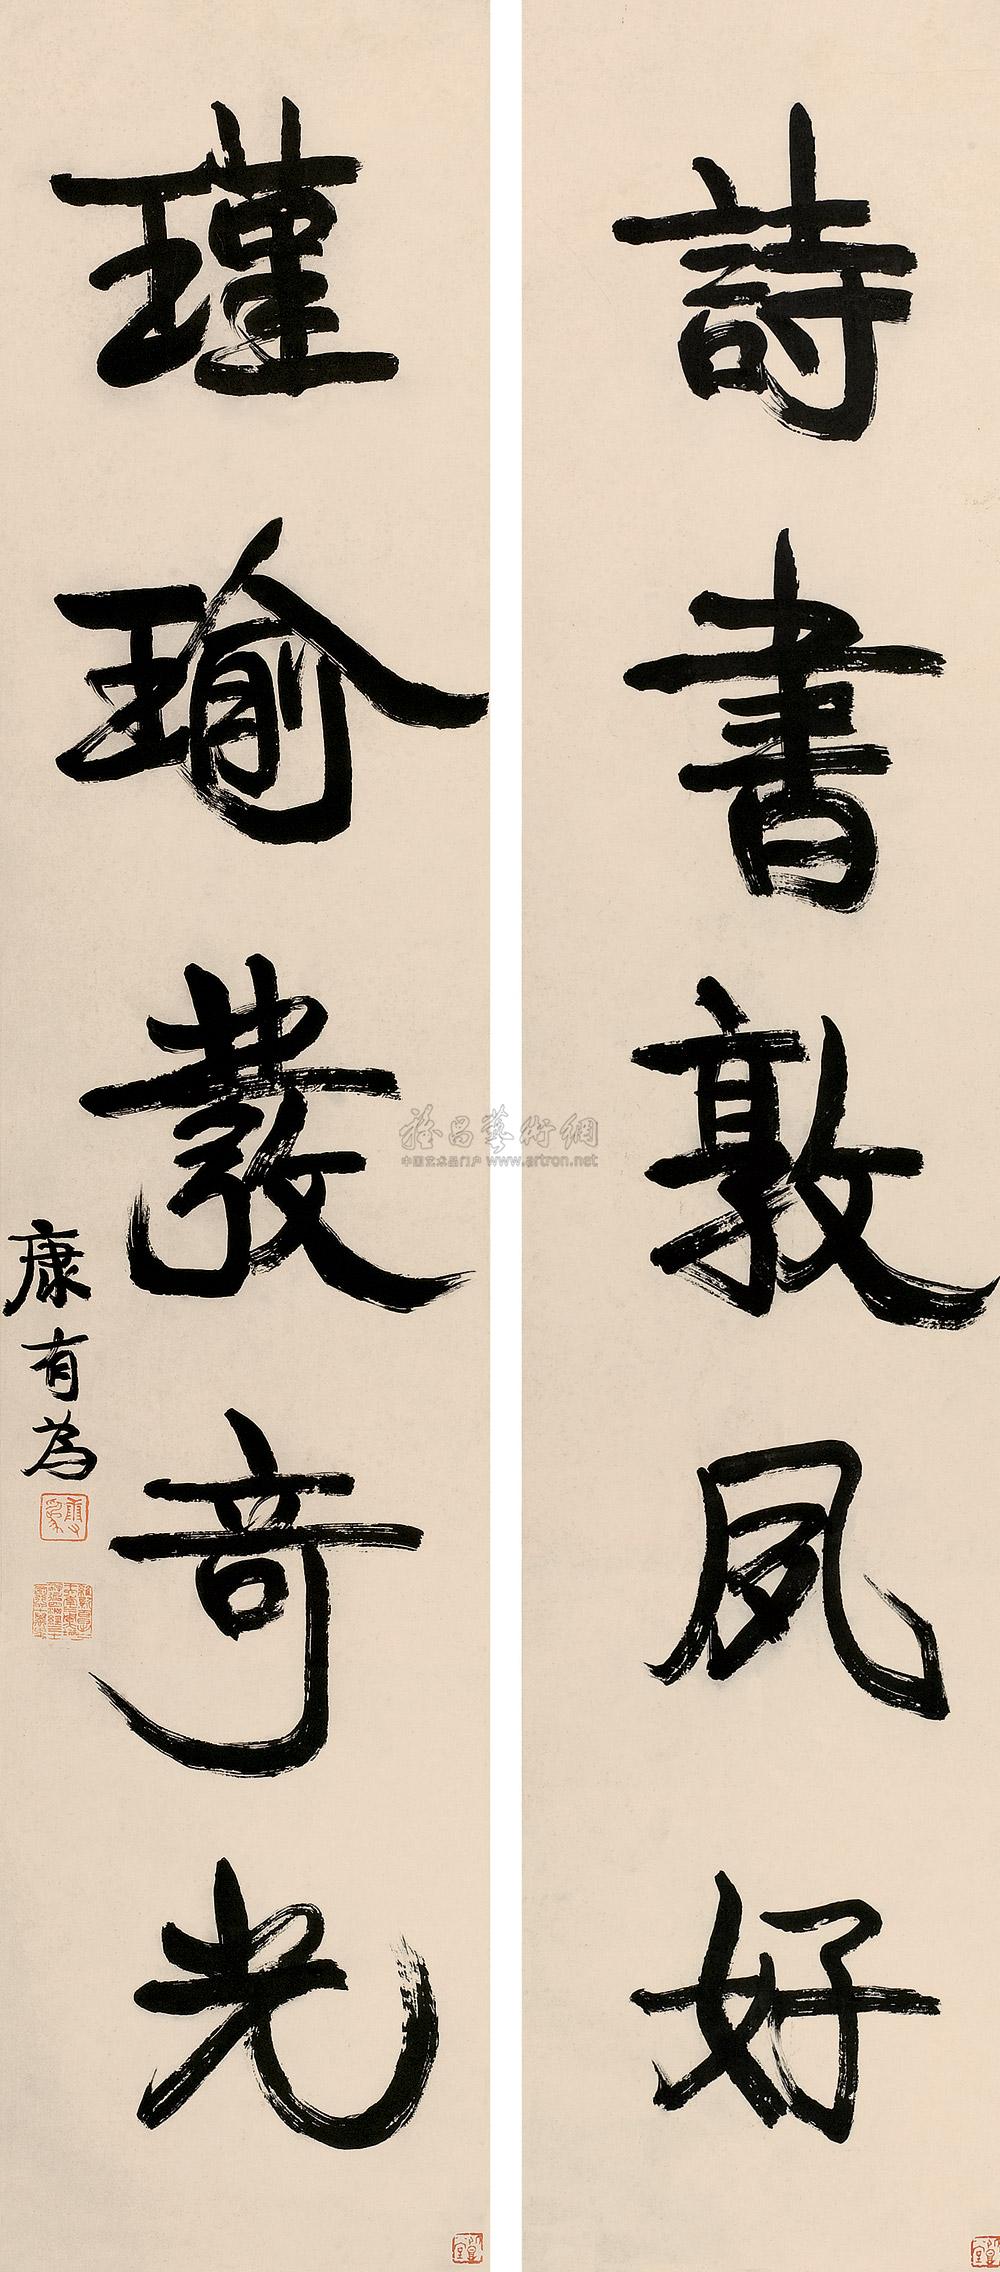 詩書敦夙好
瑾瑜發奇光
康有為
雅昌藝術網
中国艺术品门户 www.artron.net